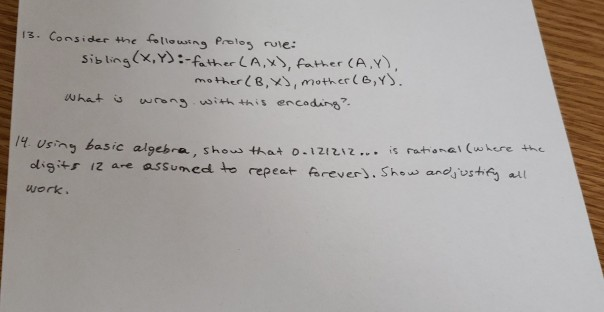 13. Consider the following Prolog rule:
sibling(X,Y):-father(A,X), father(A,Y),
mother(B,X), mother(B,Y).
What is wrong with this encoding?
14. Using basic algebra, show that 0.121212... is rational (where the
digits 12 are assumed to repeat forever). Show and justify all
work.